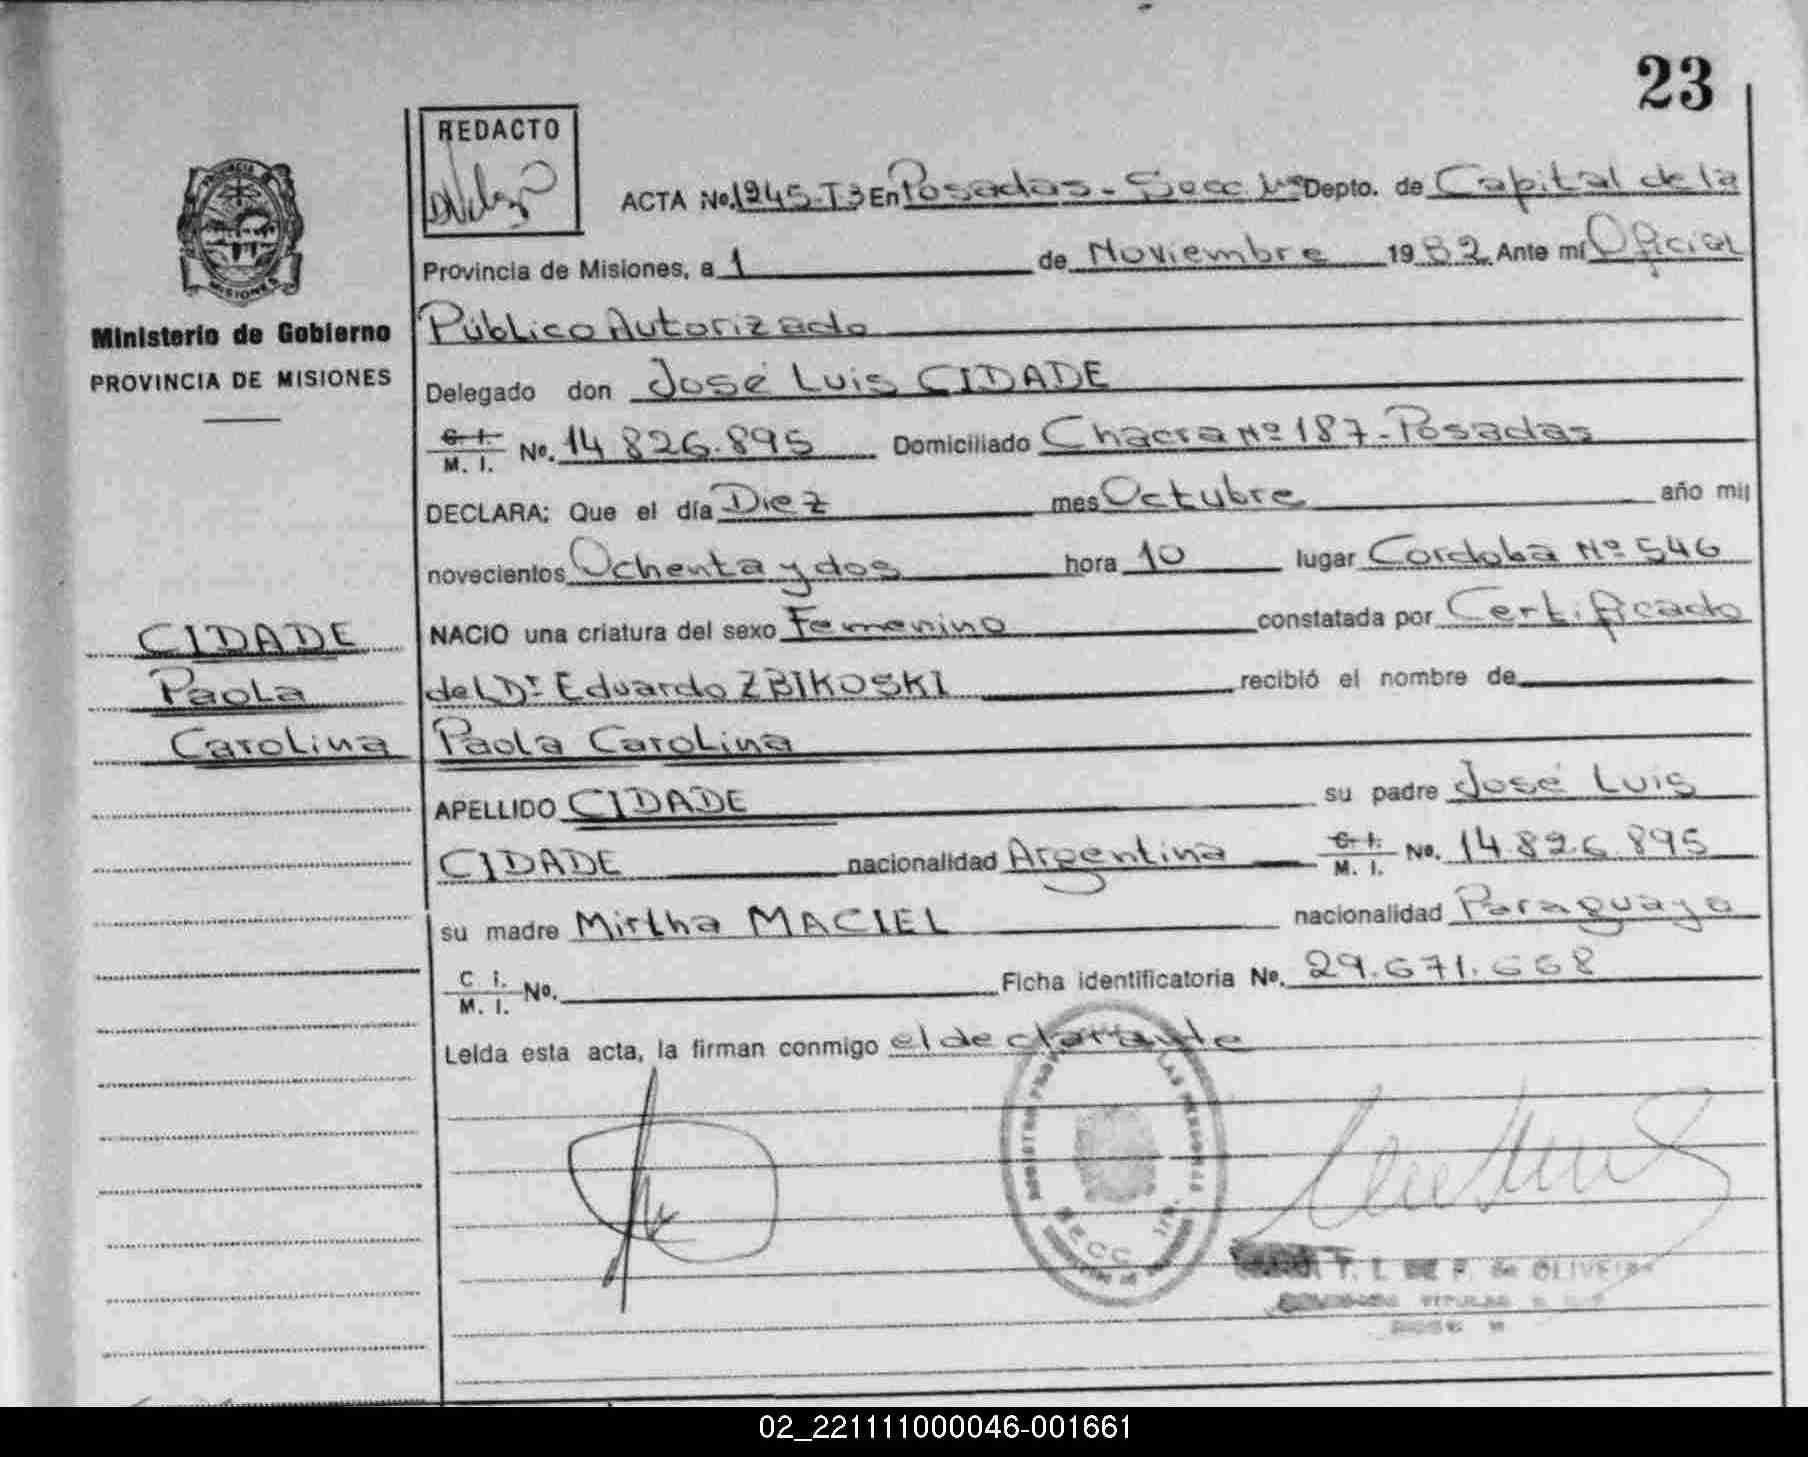 23
REDACTO
ACTA No. 1245-T3 En Posadas - Secc 1ra Depto. de Capital de la
Provincia de Misiones, a 1 de Noviembre 1982. Ante mí Oficial
Público Autorizado
Delegado don José Luis CIDADE
C. I.
M. I. No. 14.826.895 Domiciliado Chacra Nº 187 - Posadas
DECLARA: Que el día Diez mes Octubre año mil
novecientos Ochenta y dos hora 10 lugar Cordoba Nº 546
NACIO una criatura del sexo Femenino constatada por Certificado
del Dr Eduardo ZBIKOSKI recibió el nombre de
Paola Carolina
APELLIDO CIDADE su padre José Luis
CIDADE nacionalidad Argentina C. I.
M. I. No. 14.826.895
su madre Mirtha MACIEL nacionalidad Paraguaya
C. I.
M. I. No. Ficha identificatoria No. 29.671.668
Leida esta acta, la firman conmigo el declarante
PROVINCIA DE
MISIONES
Ministerio de Gobierno
PROVINCIA DE MISIONES
CIDADE
Paola
Carolina
SECC. 1ra.
T. L. DE F. de OLIVEIRA
02_221111000046-001661